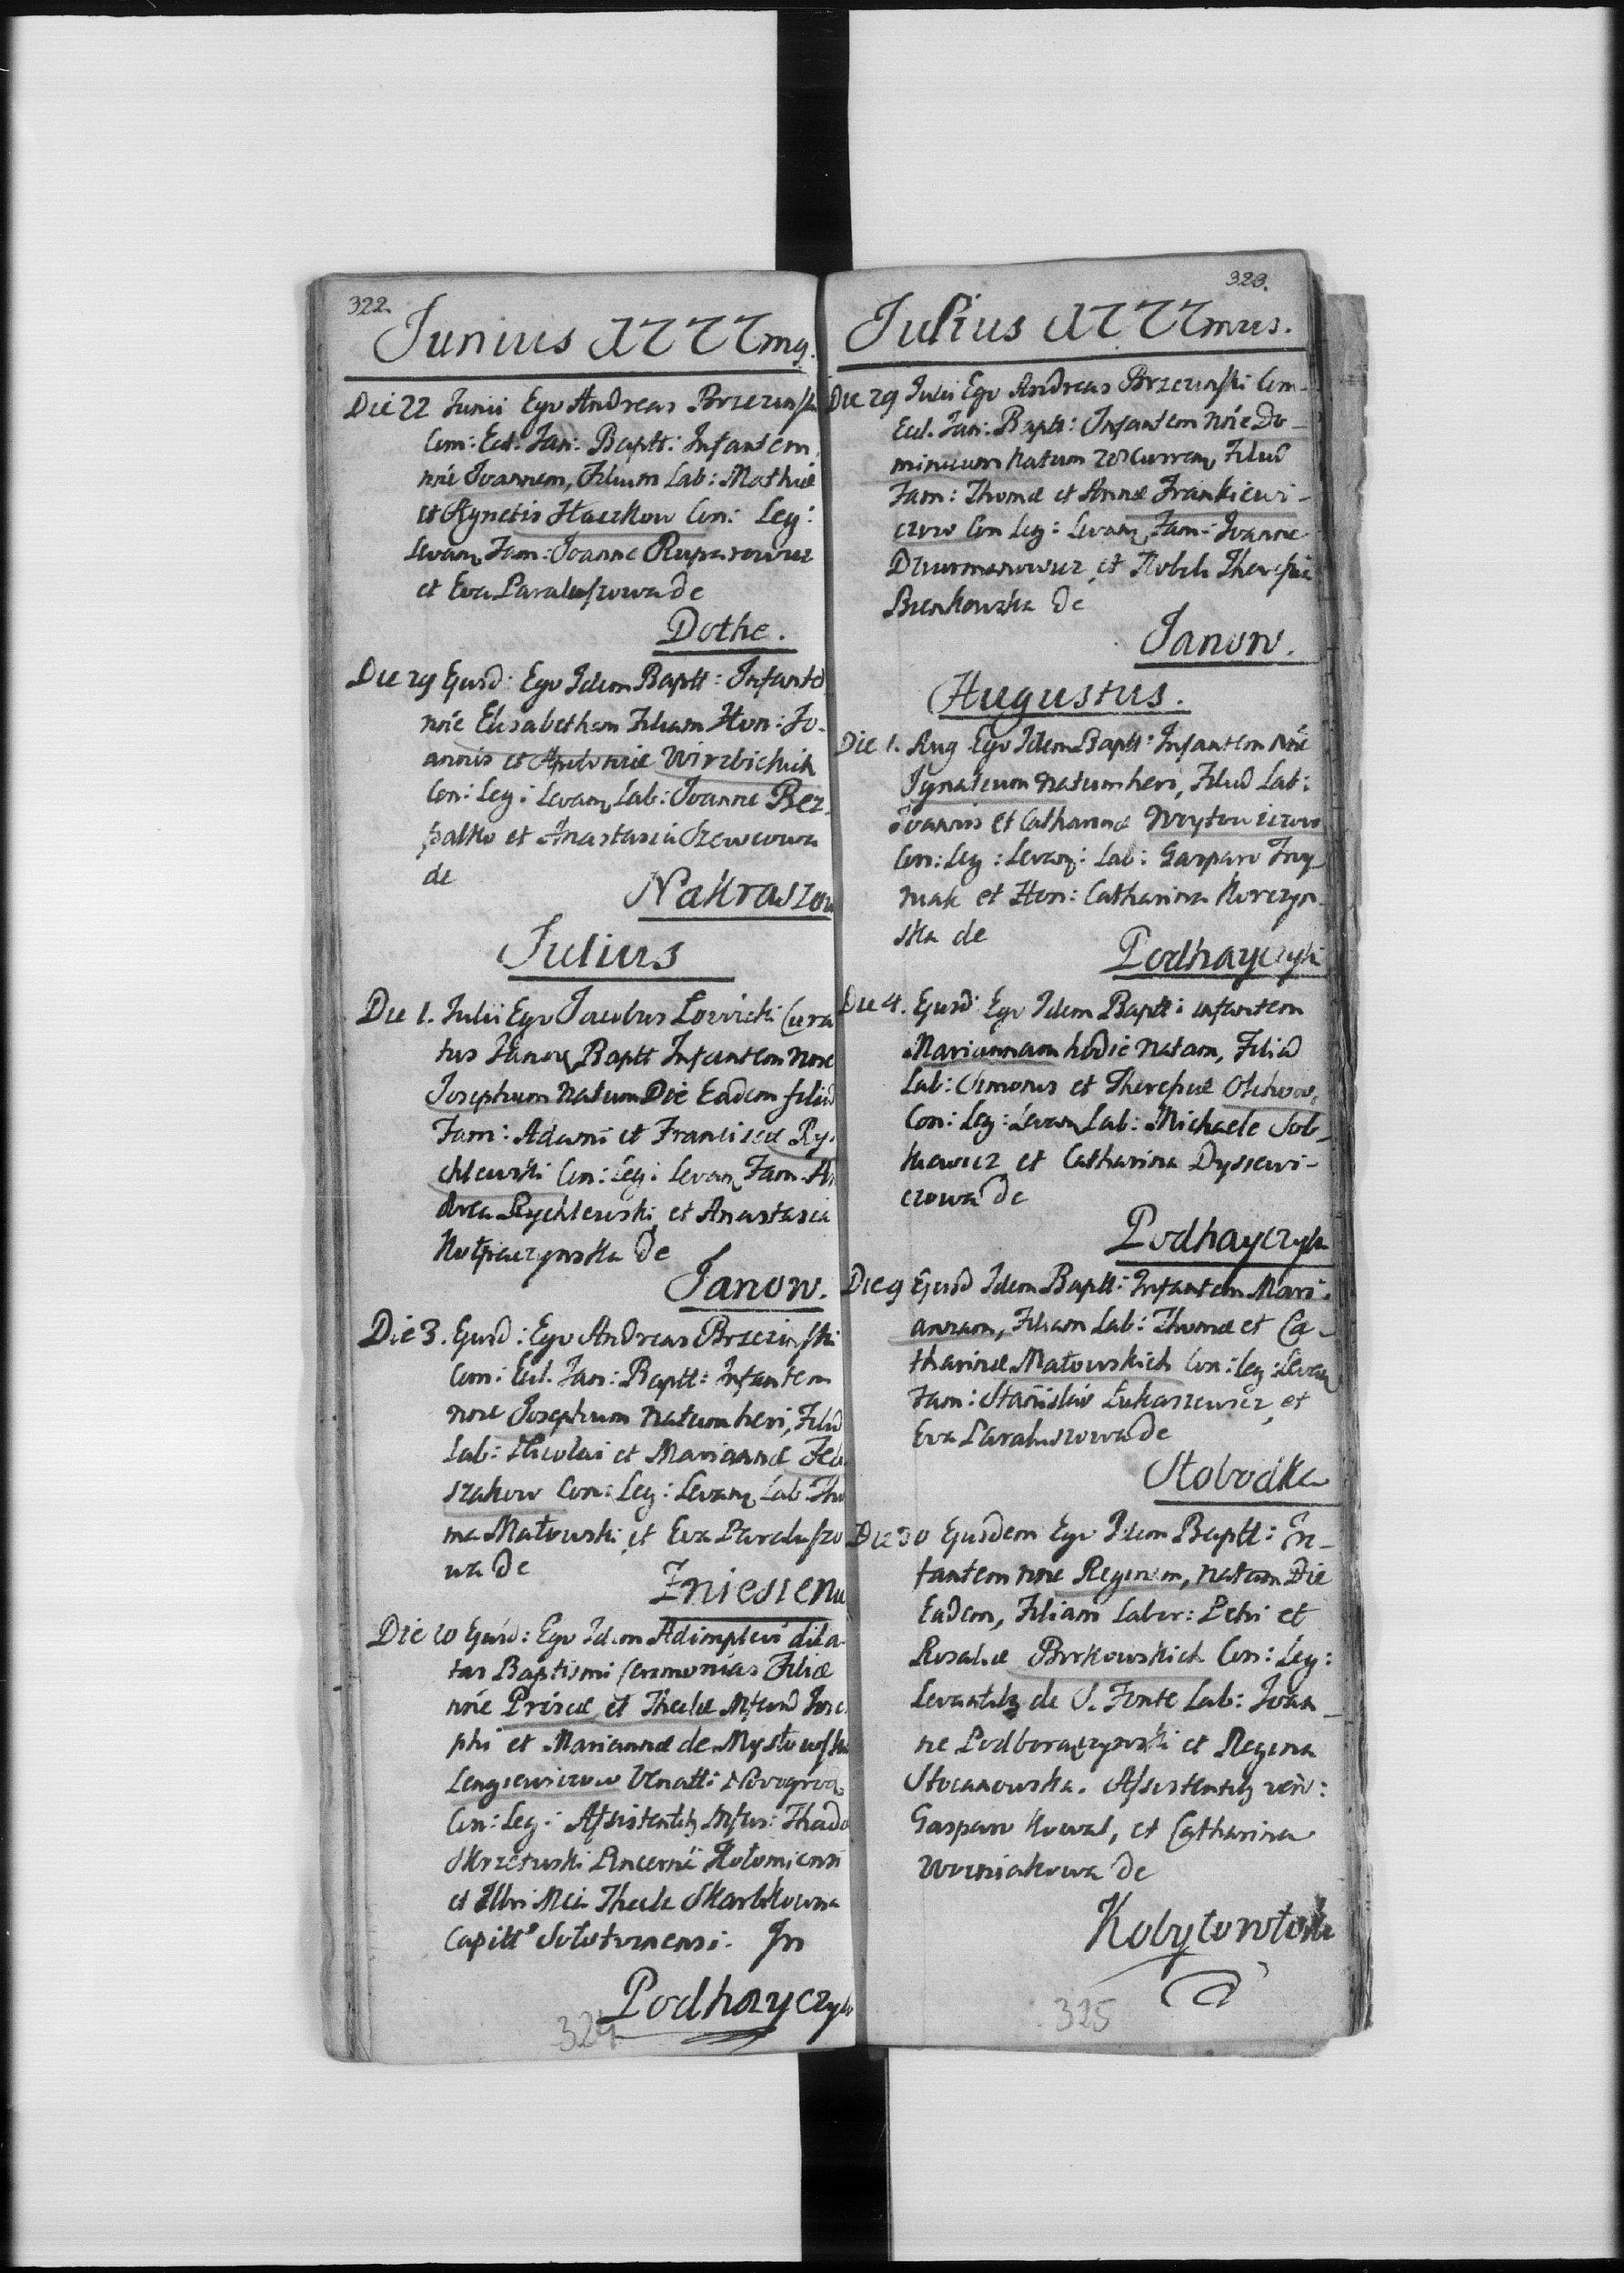 322.
Junius 1777mq.
Die 22 Junii Ego Andreas Brzezinski
Com: Ecl. Jan: Baptt: Infantem
nõe Joannem, Filium Lab: Mathiæ
et Agnetis Haczkow Con: Leg:
Levanꝗ Fam: Joanne
et Eva Paraluszowa de
Dothe.
Die 29 Ejusd: Ego Idem Baptt: Infantē
nõe Elisabetham Filiam Hon: Jo-
annis et Apoloniæ Wirzbickich
Con: Leg: Levanꝗ Lab: Joanne Bez-
palko et Anastasia Szewcowa
de
Nakraszow
Julius
Die 1. Julii Ego Jacobus Lowicki Cura
tus Janoꝗ Baptt Infantem nõe
Josephum natum Die Eadem filiū
Fam: Adami et Franciscæ Ry-
chlewski Con: Leg: Levanꝗ Fam: An
drea Rychlewski et Anastasia
de
Janow.
Die 3. Ejusd: Ego Andreas Brzezinski
Com: Ecl. Jan: Baptt: Infantem
nõe Josephum natum heri, Filiū
Lab: Nicolai et Mariannæ Fed
szakow Con: Leg: Levanꝗ Lab: Tho
ma Małowski et Eva Paraluszo
wa de
Zniesienu
Die 10 Ejusd: Ego Idem Adimplevi dila
tas Baptismi Ceremonias Filiæ
nõe Priscæ et Theclæ Josе
phi et Mariannæ de Mysłowska
Lengiewiczow Novogrod
Con: Leg: Assistentibꝗ Thadeo
Skrzetuski Pincerni Kołomiensi
et Mei Thecla Skarbkowna
Capitt
In
Podhayczyk
324
323.
Julius 1777mus.
Die 29 Julii Ego Andreas Brzezinski Com-
Ecl. Jan: Baptt: Infantem nõe Do-
minicum natum 28 Currenꝗ Filiū
Fam: Thomæ et Annæ Frankiewi-
czow Con Leg: Levanꝗ Fam: Joanne
Dzurmanowicz et Nobili Theresia
Bienkowska de
Janow.
Augustus.
Die 1. Aug Ego Idem Baptt: Infantem Nõe
Ignatium natum heri, Filiū Lab:
Joannis et Catharinæ Woytowiczow
Con: Leg: Levanꝗ: Lab: Gasparo Fry-
mak et Hon: Catharina Korczyn-
ska de
Podhayczyki
Die 4. Ejusd: Ego Idem Baptt: infantem
Mariannam hodie natam, Filiā
Lab: Simonis et Theresiæ
Con: Leg: Levanꝗ Lab: Michaele Sob-
kiewicz et Catharina Dysiewi-
czowa de
Podhayczyk
Die 9 Ejusd Idem Baptt: Infantem Mari-
annam, Filiam Lab: Thomæ et Ca-
tharinæ Małowskich Con: Leg: Levanꝗ
Fam: Stanislao Łukasiewicz et
Eva Paraluszowa de
Słobodka
Die 30 Ejusdem Ego Idem Baptt: In-
fantem nõe Reginam, natam Die
Eadem, Filiam Labor: Petri et
Rosaliæ Borkowskich Con: Leg:
Levantibꝗ de S. Fonte Lab: Joan-
ne Podboraczynski et Regina
Stocanowska. Assistentibꝗ verò:
Gasparo Kowal, et Catharina
Wozniakowa de
Kobyłowłoki
325